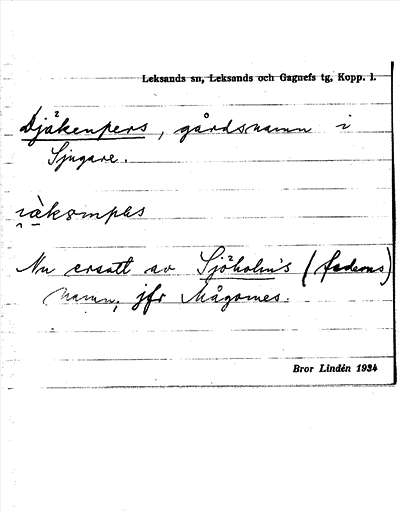 Leksands sn, Leksands och Gagnefs tg, Kopp. l.
Djäkenpers, gårdsnamn i
Sjugare.
Nu ersatt av Sjöholm's (faderns)
namn, jfr Mågomes.
Bror Lindén 1934